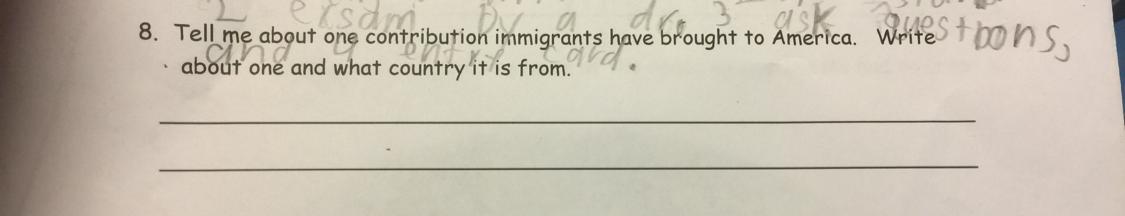 2 exsam by a dr. 3 ask questions,
8. Tell me about one contribution immigrants have brought to America. Write
and 4 entry card.
about one and what country it is from.